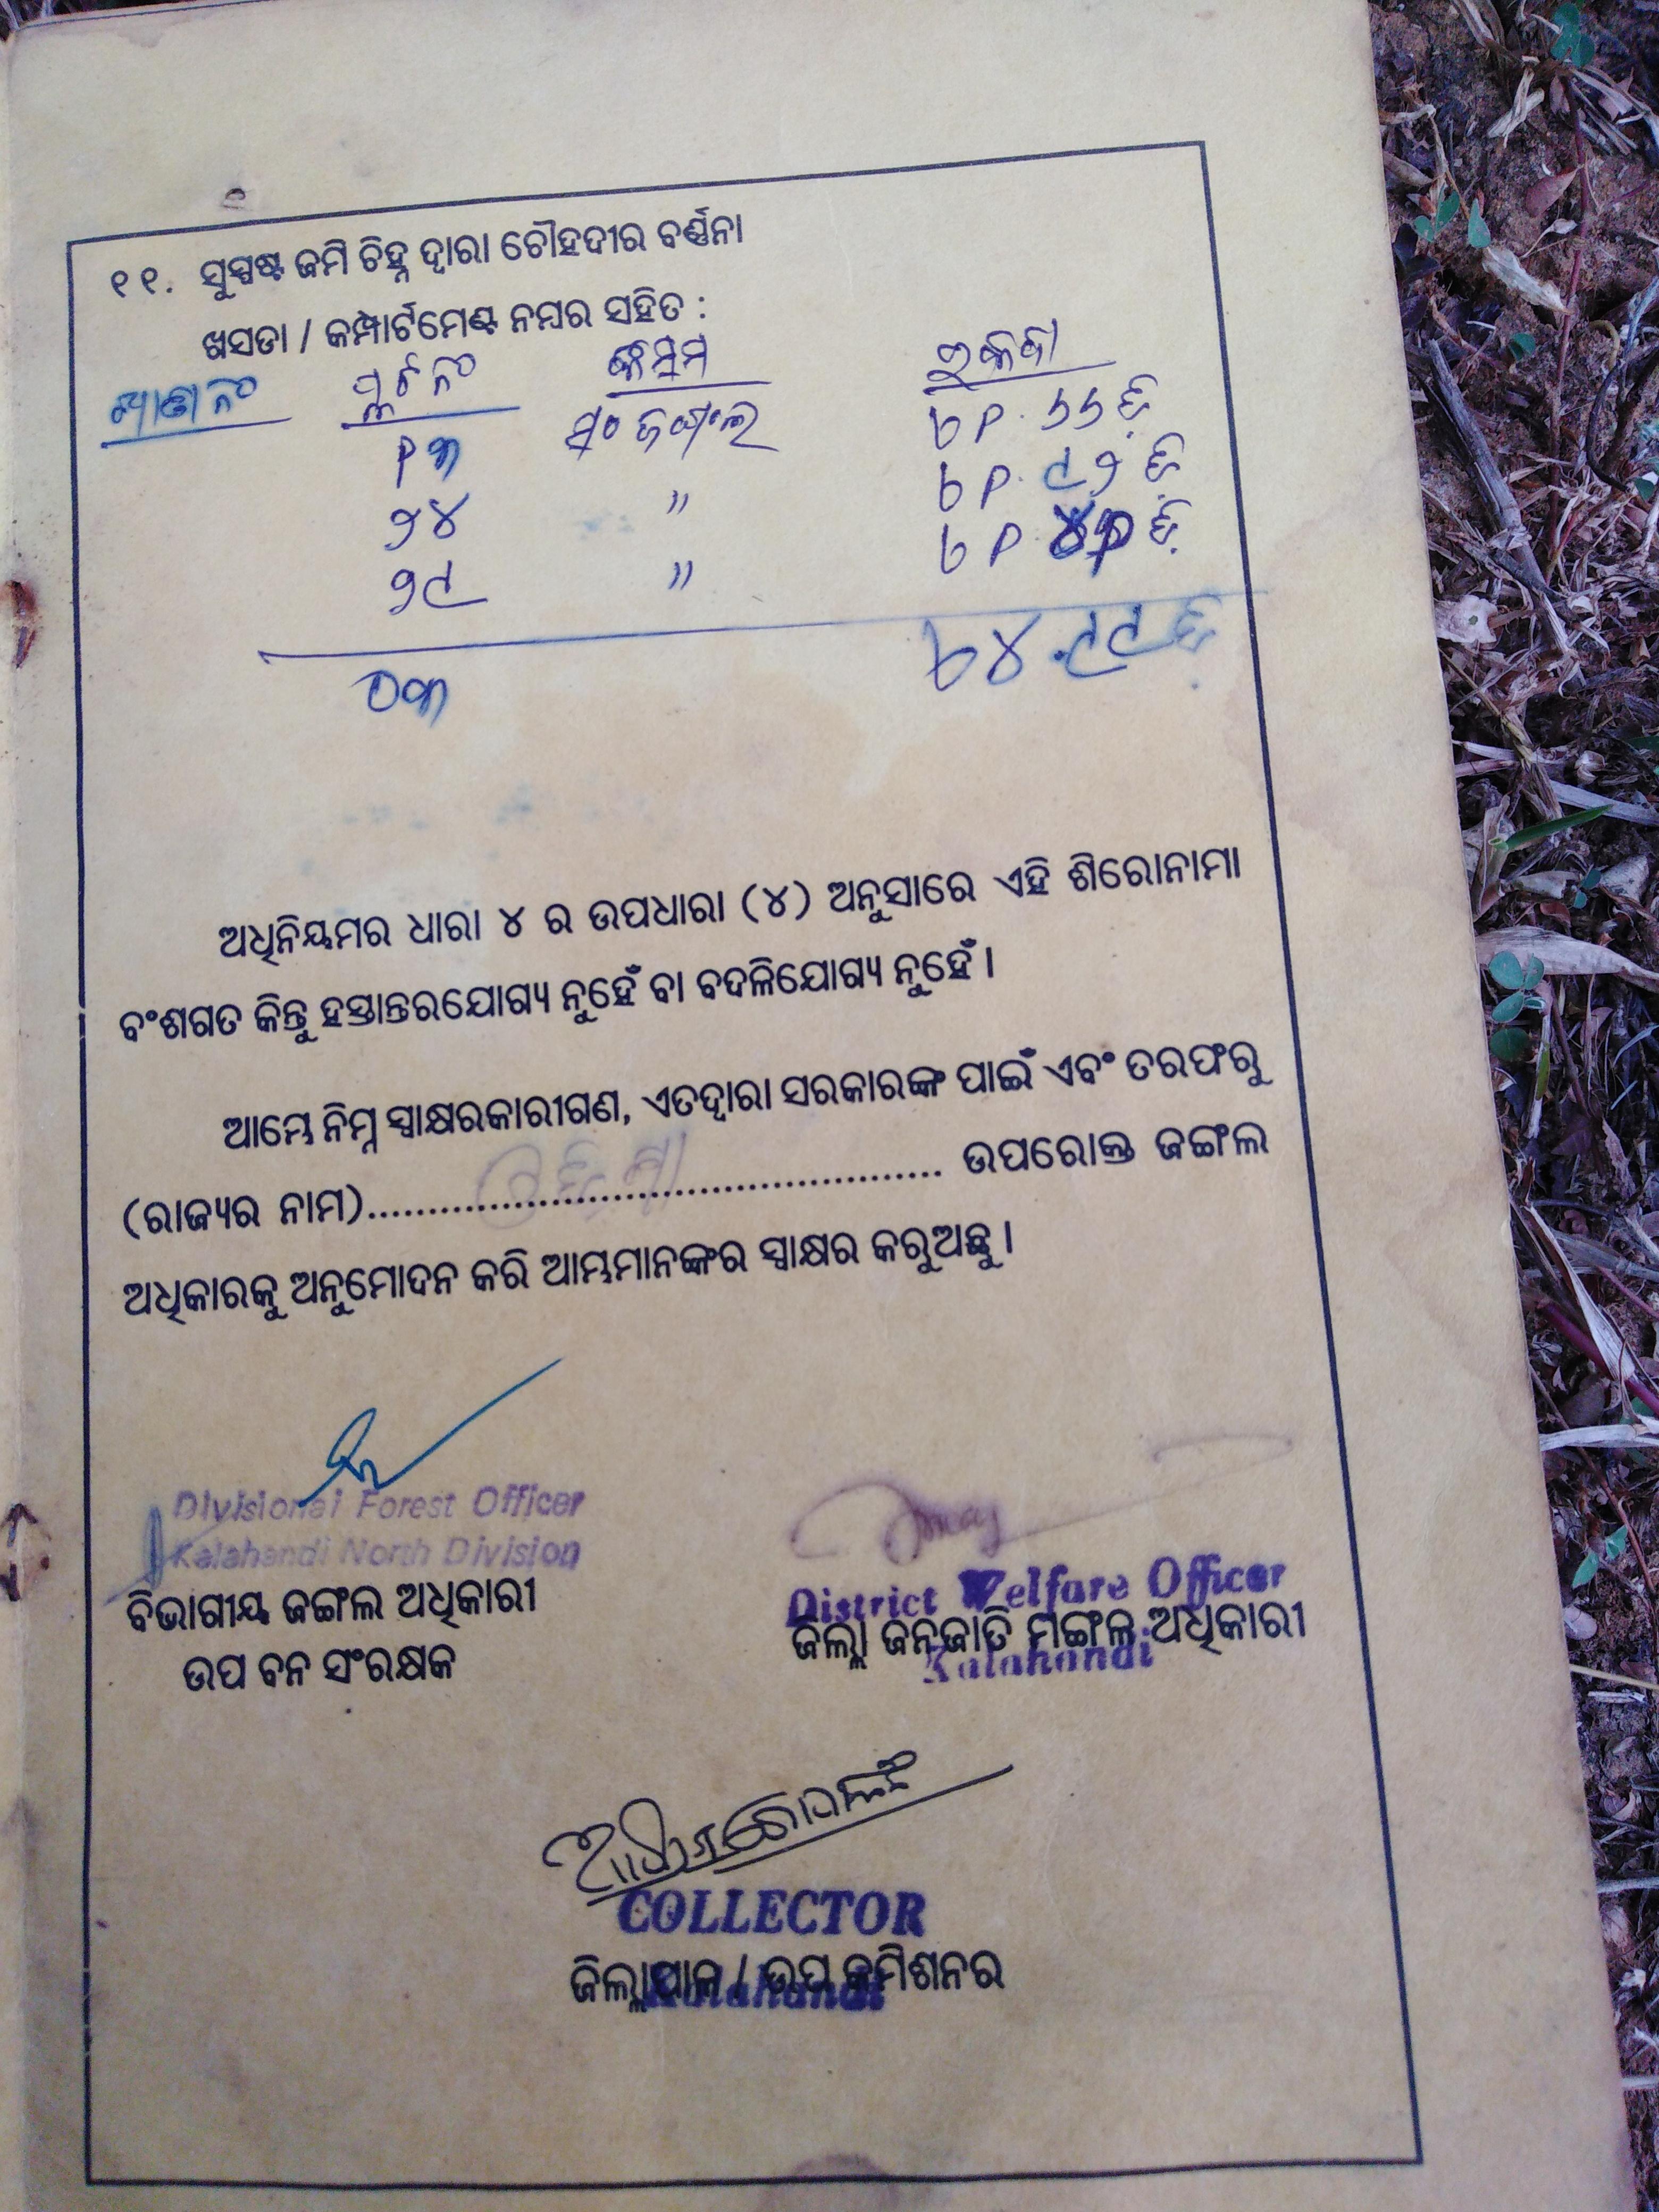 ୧୧. ସୁସ୍ପଷ୍ଟ ଜମି ଚିହ୍ନ ଦ୍ୱାରା ଚୌହଦୀର ବର୍ଣ୍ଣନା
ଖସଡା / କମ୍ପାର୍ଟମେଣ୍ଟ ନମ୍ବର ସହିତ :
ପ୍ଲଟ ନଂ କିସମ
ଜଙ୍ଗଲ
୨୪ "
୨୯ "
୦୩
ଅଧିନିୟମର ଧାରା ୪ ର ଉପଧାରା (୪) ଅନୁସାରେ ଏହି ଶିରୋନାମା
ବଂଶଗତ କିନ୍ତୁ ହସ୍ତାନ୍ତରଯୋଗ୍ୟ ନୁହେଁ ବା ବଦଳିଯୋଗ୍ୟ ନୁହେଁ ।
ଆମ୍ଭେ ନିମ୍ନ ସ୍ୱାକ୍ଷରକାରୀଗଣ, ଏତଦ୍ୱାରା ସରକାରଙ୍କ ପାଇଁ ଏବଂ ତରଫରୁ
(ରାଜ୍ୟର ନାମ)................................................ ଉପରୋକ୍ତ ଜଙ୍ଗଲ
ଅଧିକାରକୁ ଅନୁମୋଦନ କରି ଆମ୍ଭମାନଙ୍କର ସ୍ୱାକ୍ଷର କରୁଅଛୁ ।
Divisional Forest Officer
Kalahandi North Division
ବିଭାଗୀୟ ଜଙ୍ଗଲ ଅଧିକାରୀ
ଉପ ବନ ସଂରକ୍ଷକ
District Welfare Officer
ଜିଲ୍ଲା ଜନଜାତି ମଙ୍ଗଳ ଅଧିକାରୀ
Kalahandi
COLLECTOR
ଜିଲ୍ଲାପାଳ / ଉପ କମିଶନର
Kalahandi